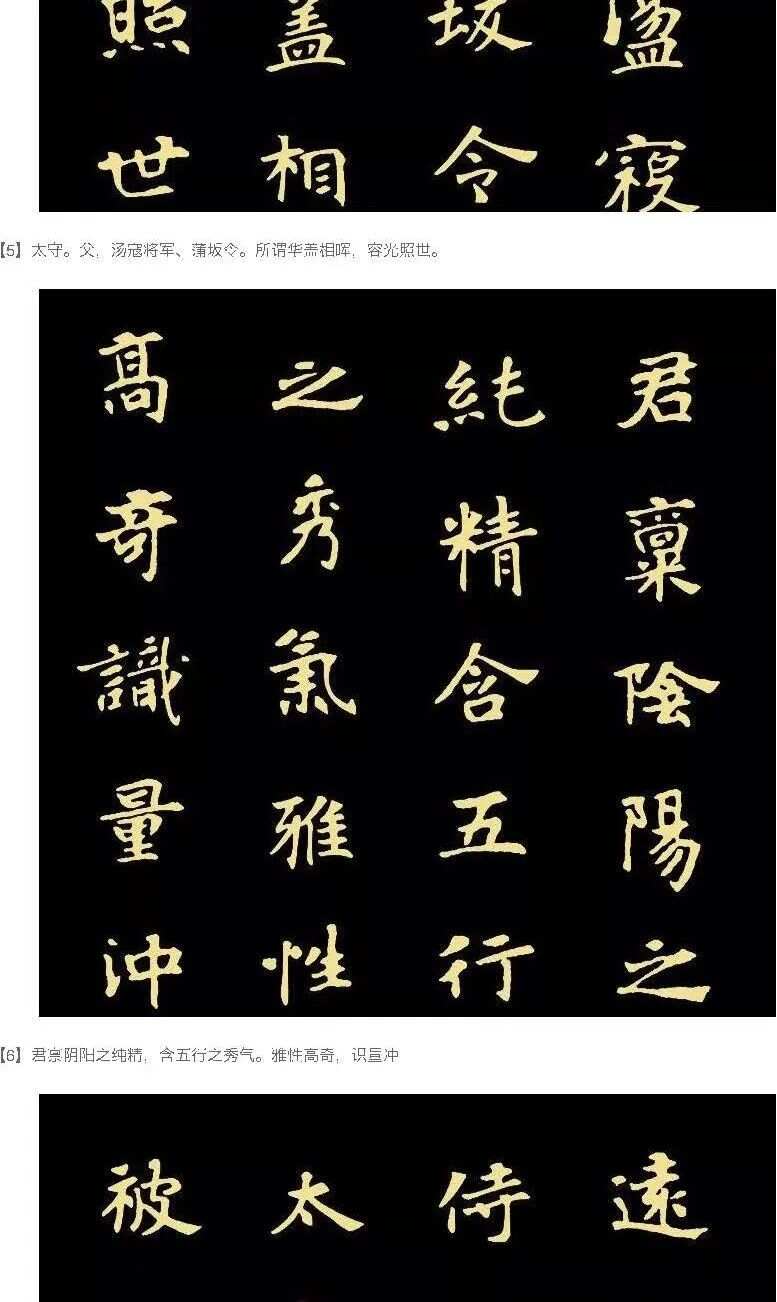 盪寇
坂令
盖相
照世
【5】太守。父，汤寇将军、蒲坂令。所谓华盖相晖，容光照世。
君稟陰陽之
純精含五行
之秀氣雅性
高奇識量沖
【6】君禀阴阳之纯精，含五行之秀气。雅性高奇，识量冲
遠
侍
太
被